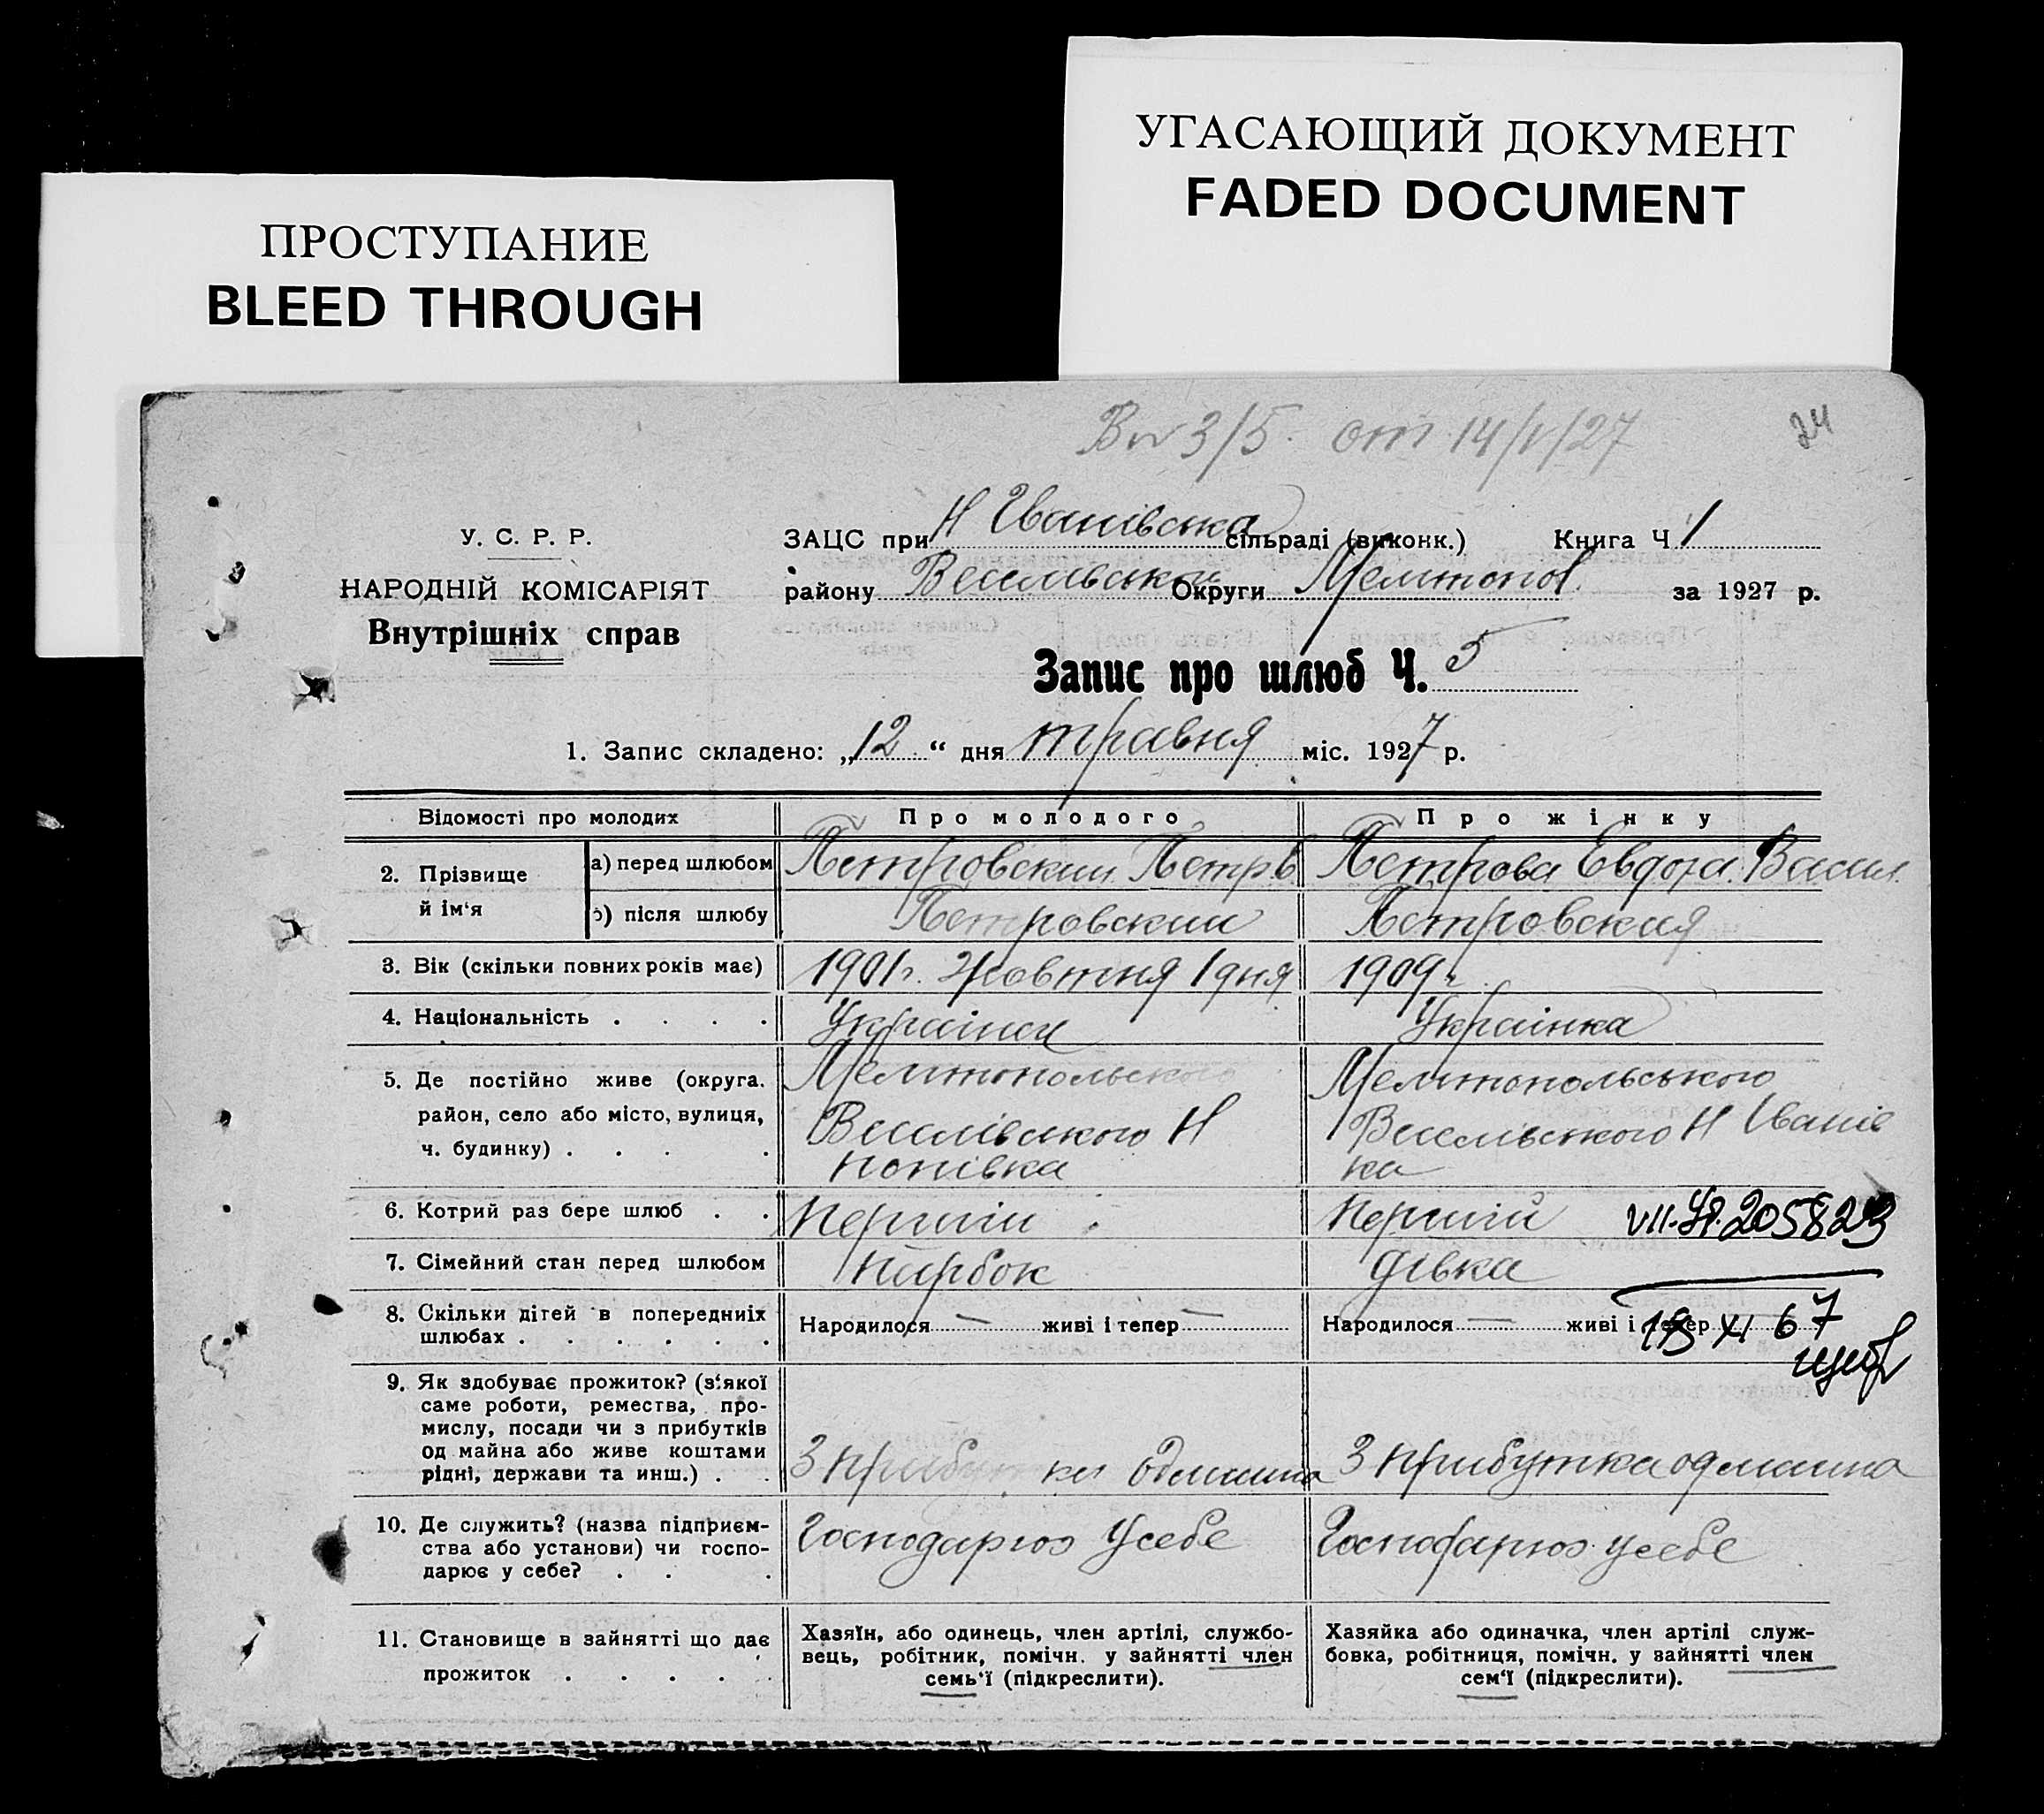 УГАСАЮЩИЙ ДОКУМЕНТ
FADED DOCUMENT
ПРОСТУПАНИЕ
BLEED THROUGH
3/5. от 14/V/27
24
У. С. Р. Р.
НАРОДНІЙ КОМІСАРІЯТ
Внутрішніх справ
ЗАЦС при Н Іванівська сільраді (виконк.) Книга Ч 1
району Веселівськой Округи Мелитопол. за 1927 р.
Запис про шлюб Ч. 5
1. Запис складено: „12“ дня травня міс. 1927 р.
Відомості про молодих
Про молодого
Про жінку
2. Прізвище й ім‘я
а) перед шлюбом
Петровский Петр.В
Петрова Евдоха Васил.
б) після шлюбу
Петровский
Петровская
3. Вік (скільки повних років має)
1901г. Жовтня 1 дня
1909г.
4. Національність . . . .
Українец
Українка
5. Де постійно живе (округа.
район, село або місто, вулиця,
ч. будинку) . . . .
Мелитопольського
Веселівського Н
попівка
Мелитопольського
Веселівського Н Іванів
ка
6. Котрий раз бере шлюб . .
Перший
Перший
205823
7. Сімейний стан перед шлюбом
Парбок
дівка
8. Скільки дітей в попередниіх
шлюбах . . . . . .
Народилося — живі і тепер —
Народилося — живі і тепер
XI 67
9. Як здобуває прожиток? (з‘якої
саме роботи, ремества, про-
мислу, посади чи з прибутків
од майна або живе коштами
рідні, держави та инш.) . .
З прибутка одмаина
З прибутка одмаина
10. Де служить? (назва підприєм-
ства або установи) чи госпо-
дарює у себе? . . .
Господарюэ Усебе
Господарюэ усебе
11. Становище в зайнятті що дає
прожиток . . . . .
Хазяїн, або одинець, член артілі, службо-
вець, робітник, помічн. у зайнятті член
семь‘ї (підкреслити).
Хазяйка або одиначка, член артілі служ-
бовка, робітниця, помічн. у зайнятті член
сем‘ї (підкреслити).